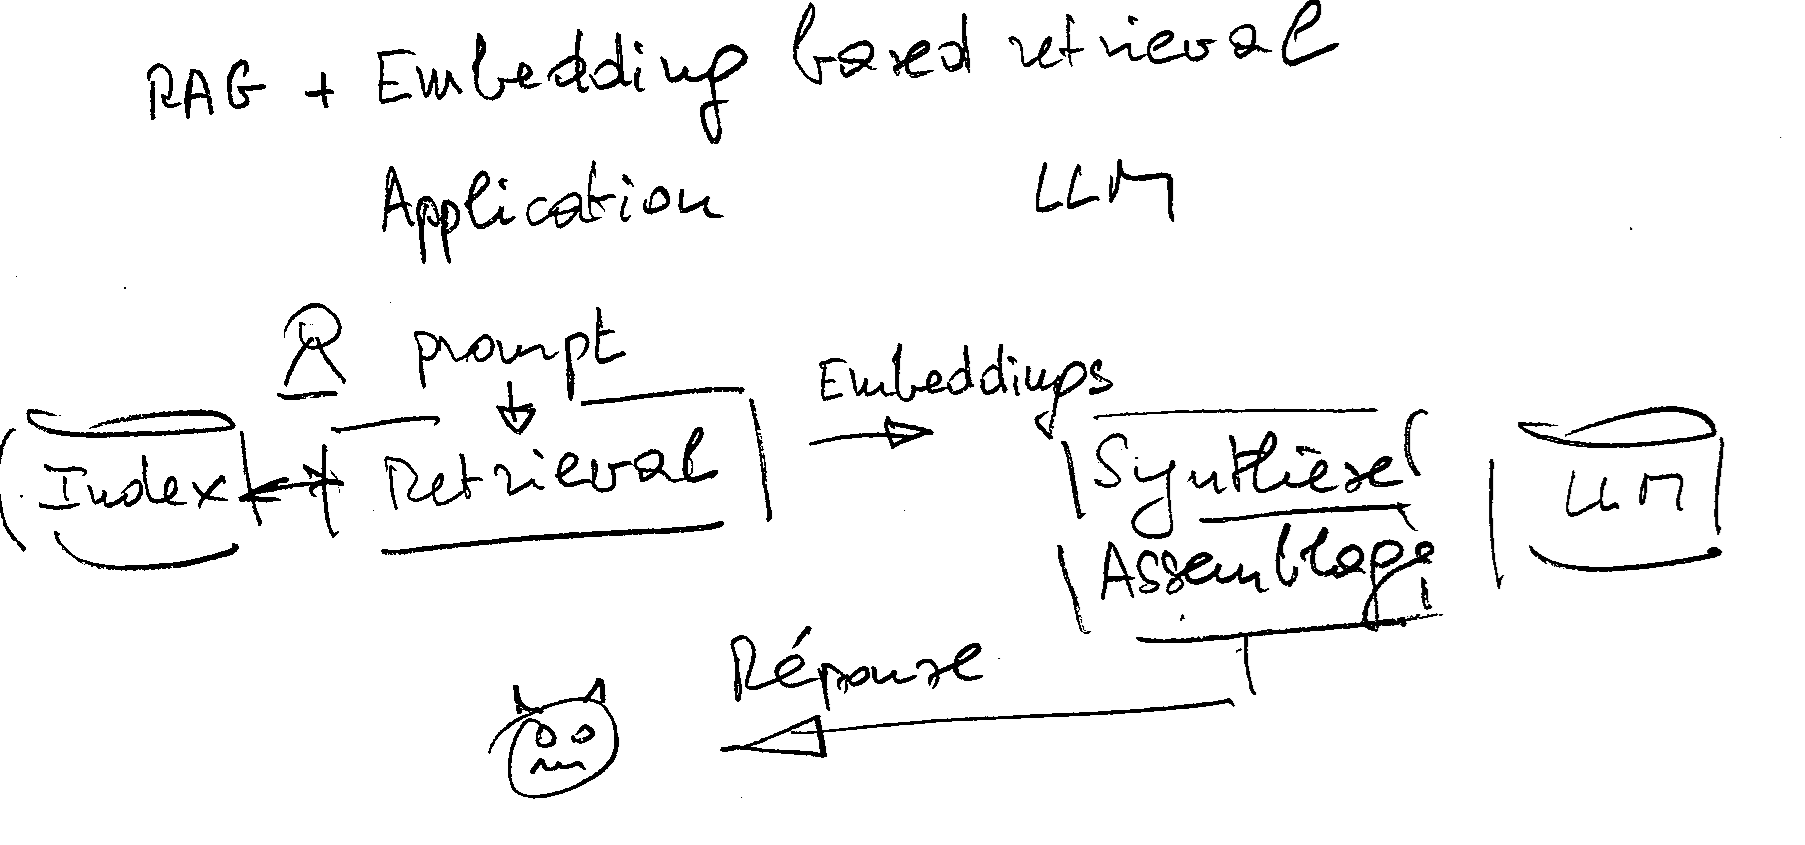 RAG + Embedding based retrieval
Application LLM
prompt
Embeddings
Index Retrieval Synthèse LLM
Assemblage
Réponse